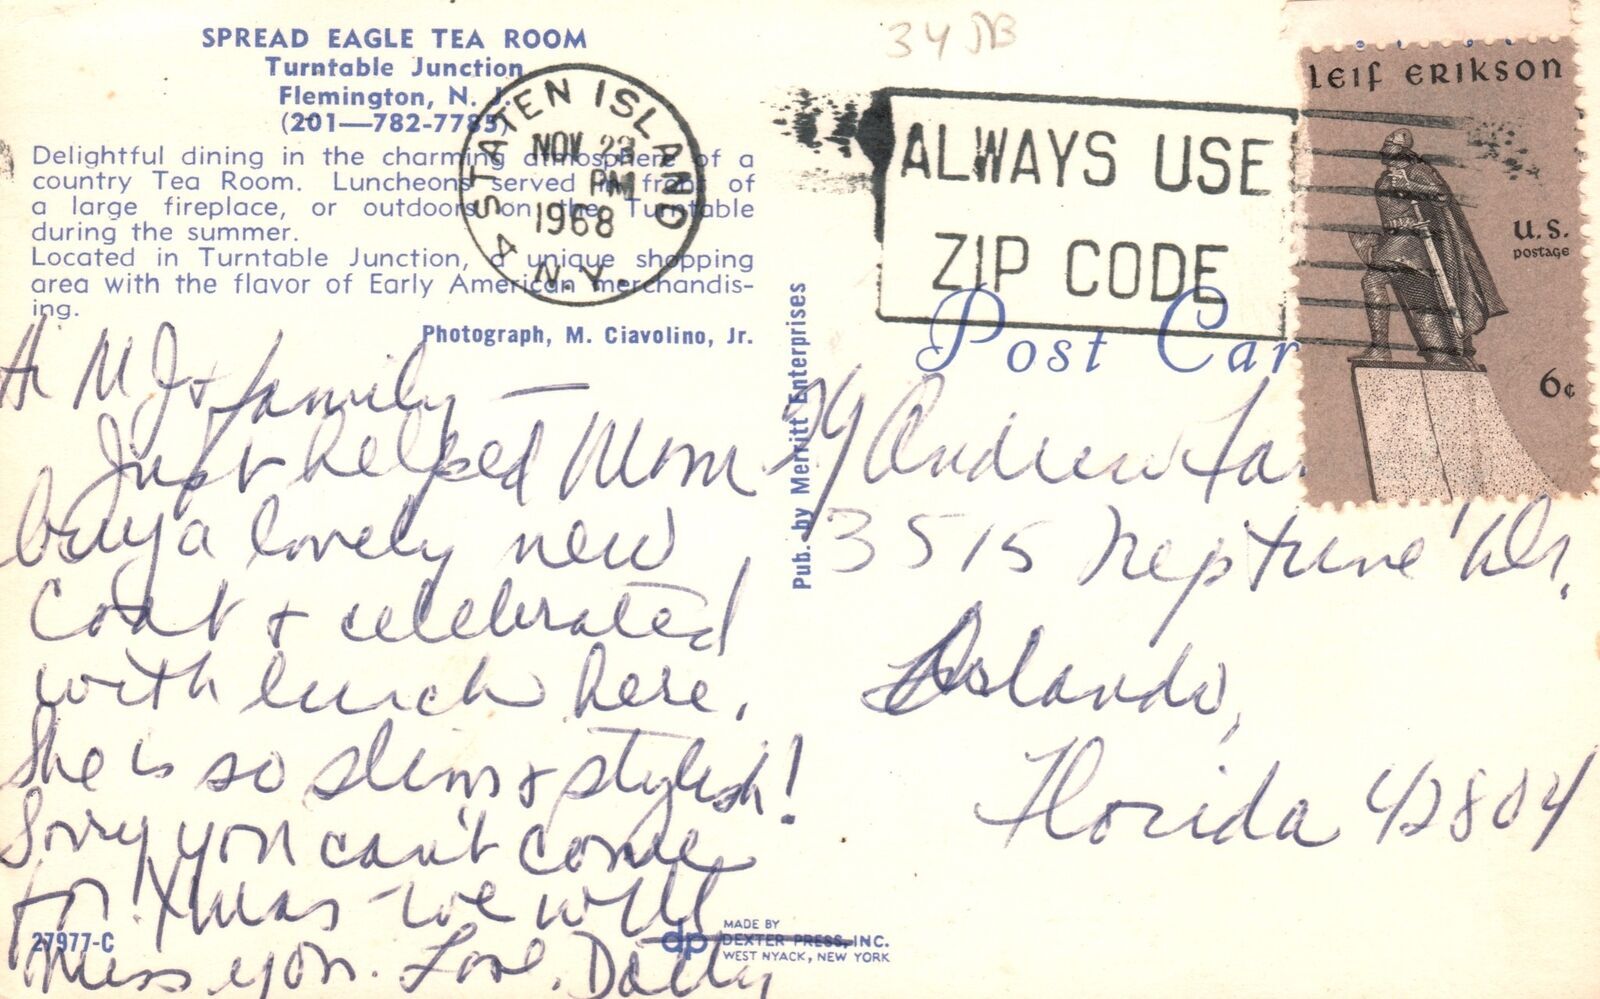 SPREAD EAGLE TEA ROOM
Turntable Junction
Flemington, N. J.
(201—782-7785)
Delightful dining in the charming atmosphere of a
country Tea Room. Luncheons served in front of
a large fireplace, or outdoors on the Turntable
during the summer.
Located in Turntable Junction, a unique shopping
area with the flavor of Early American merchandis-
ing.
Photograph, M. Ciavolino, Jr.
STATEN ISLAND
NOV 23
PM
1968
N.Y.
34
ALWAYS USE
ZIP CODE
LEIF ERIKSON
U.S.
POSTAGE
6¢
Post Car
Pub. by Merritt Enterprises
Hi MJ & family —
Just helped Mom
buy a lovely new
coat & celebrated
with lunch here.
She is so slim & stylish!
Sorry you can't come
for Xmas - we will
miss you. Love, Dolly
Andrew
3515 Neptune Dr,
Orlando,
Florida 42804
27977-C
dp
MADE BY
DEXTER PRESS, INC.
WEST NYACK, NEW YORK